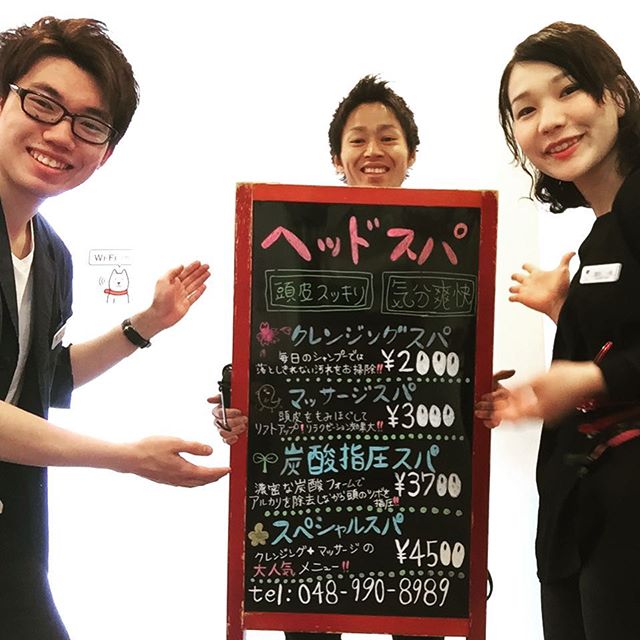 Wi-Fi
ヘッドスパ
頭皮スッキリ
気分爽快
クレンジングスパ
毎日のシャンプーでは
落としきれない汚れをお掃除!!
¥2000
マッサージスパ
頭皮をもみほぐして
リフトアップ!リラクゼーション効果大!!
¥3000
炭酸指圧スパ
濃密な炭酸フォームで
アルカリを除去しながら頭のツボを
指圧!!
¥3700
スペシャルスパ
クレンジング+マッサージの
大人気メニュー!!
¥4500
tel: 048-990-8989